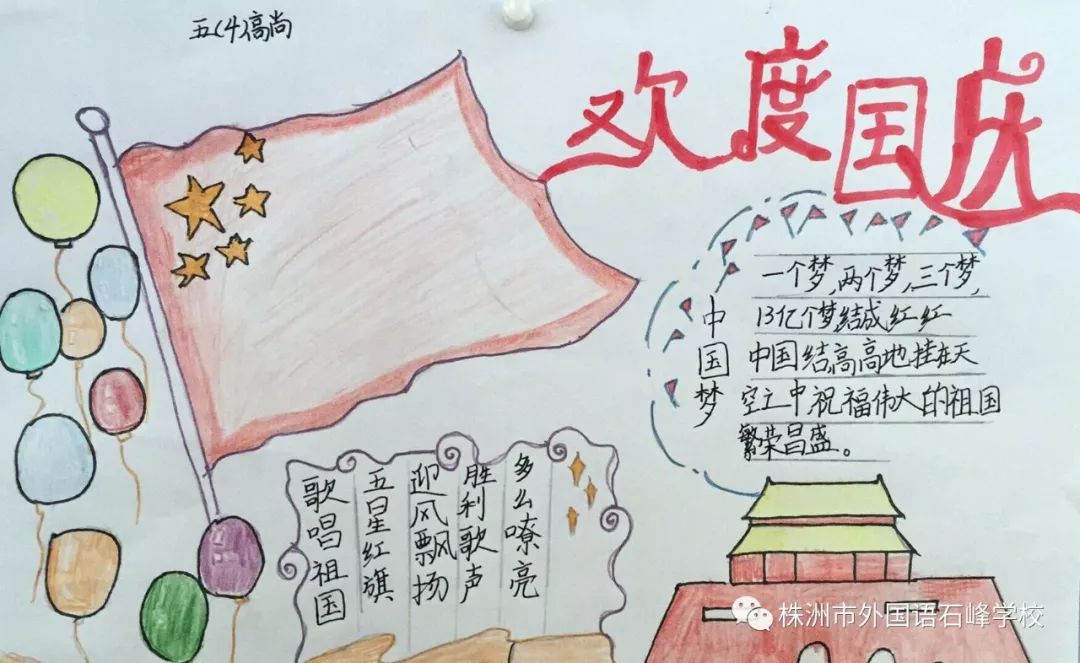 五(4)高尚
欢度国庆
中国梦
一个梦,两个梦,三个梦,
13亿个梦,结成红红
中国结,高高地挂在天
空之中,祝福伟大的祖国
繁荣昌盛。
歌唱祖国
五星红旗
迎风飘扬
胜利歌声
多么嘹亮
株洲市外国语石峰学校